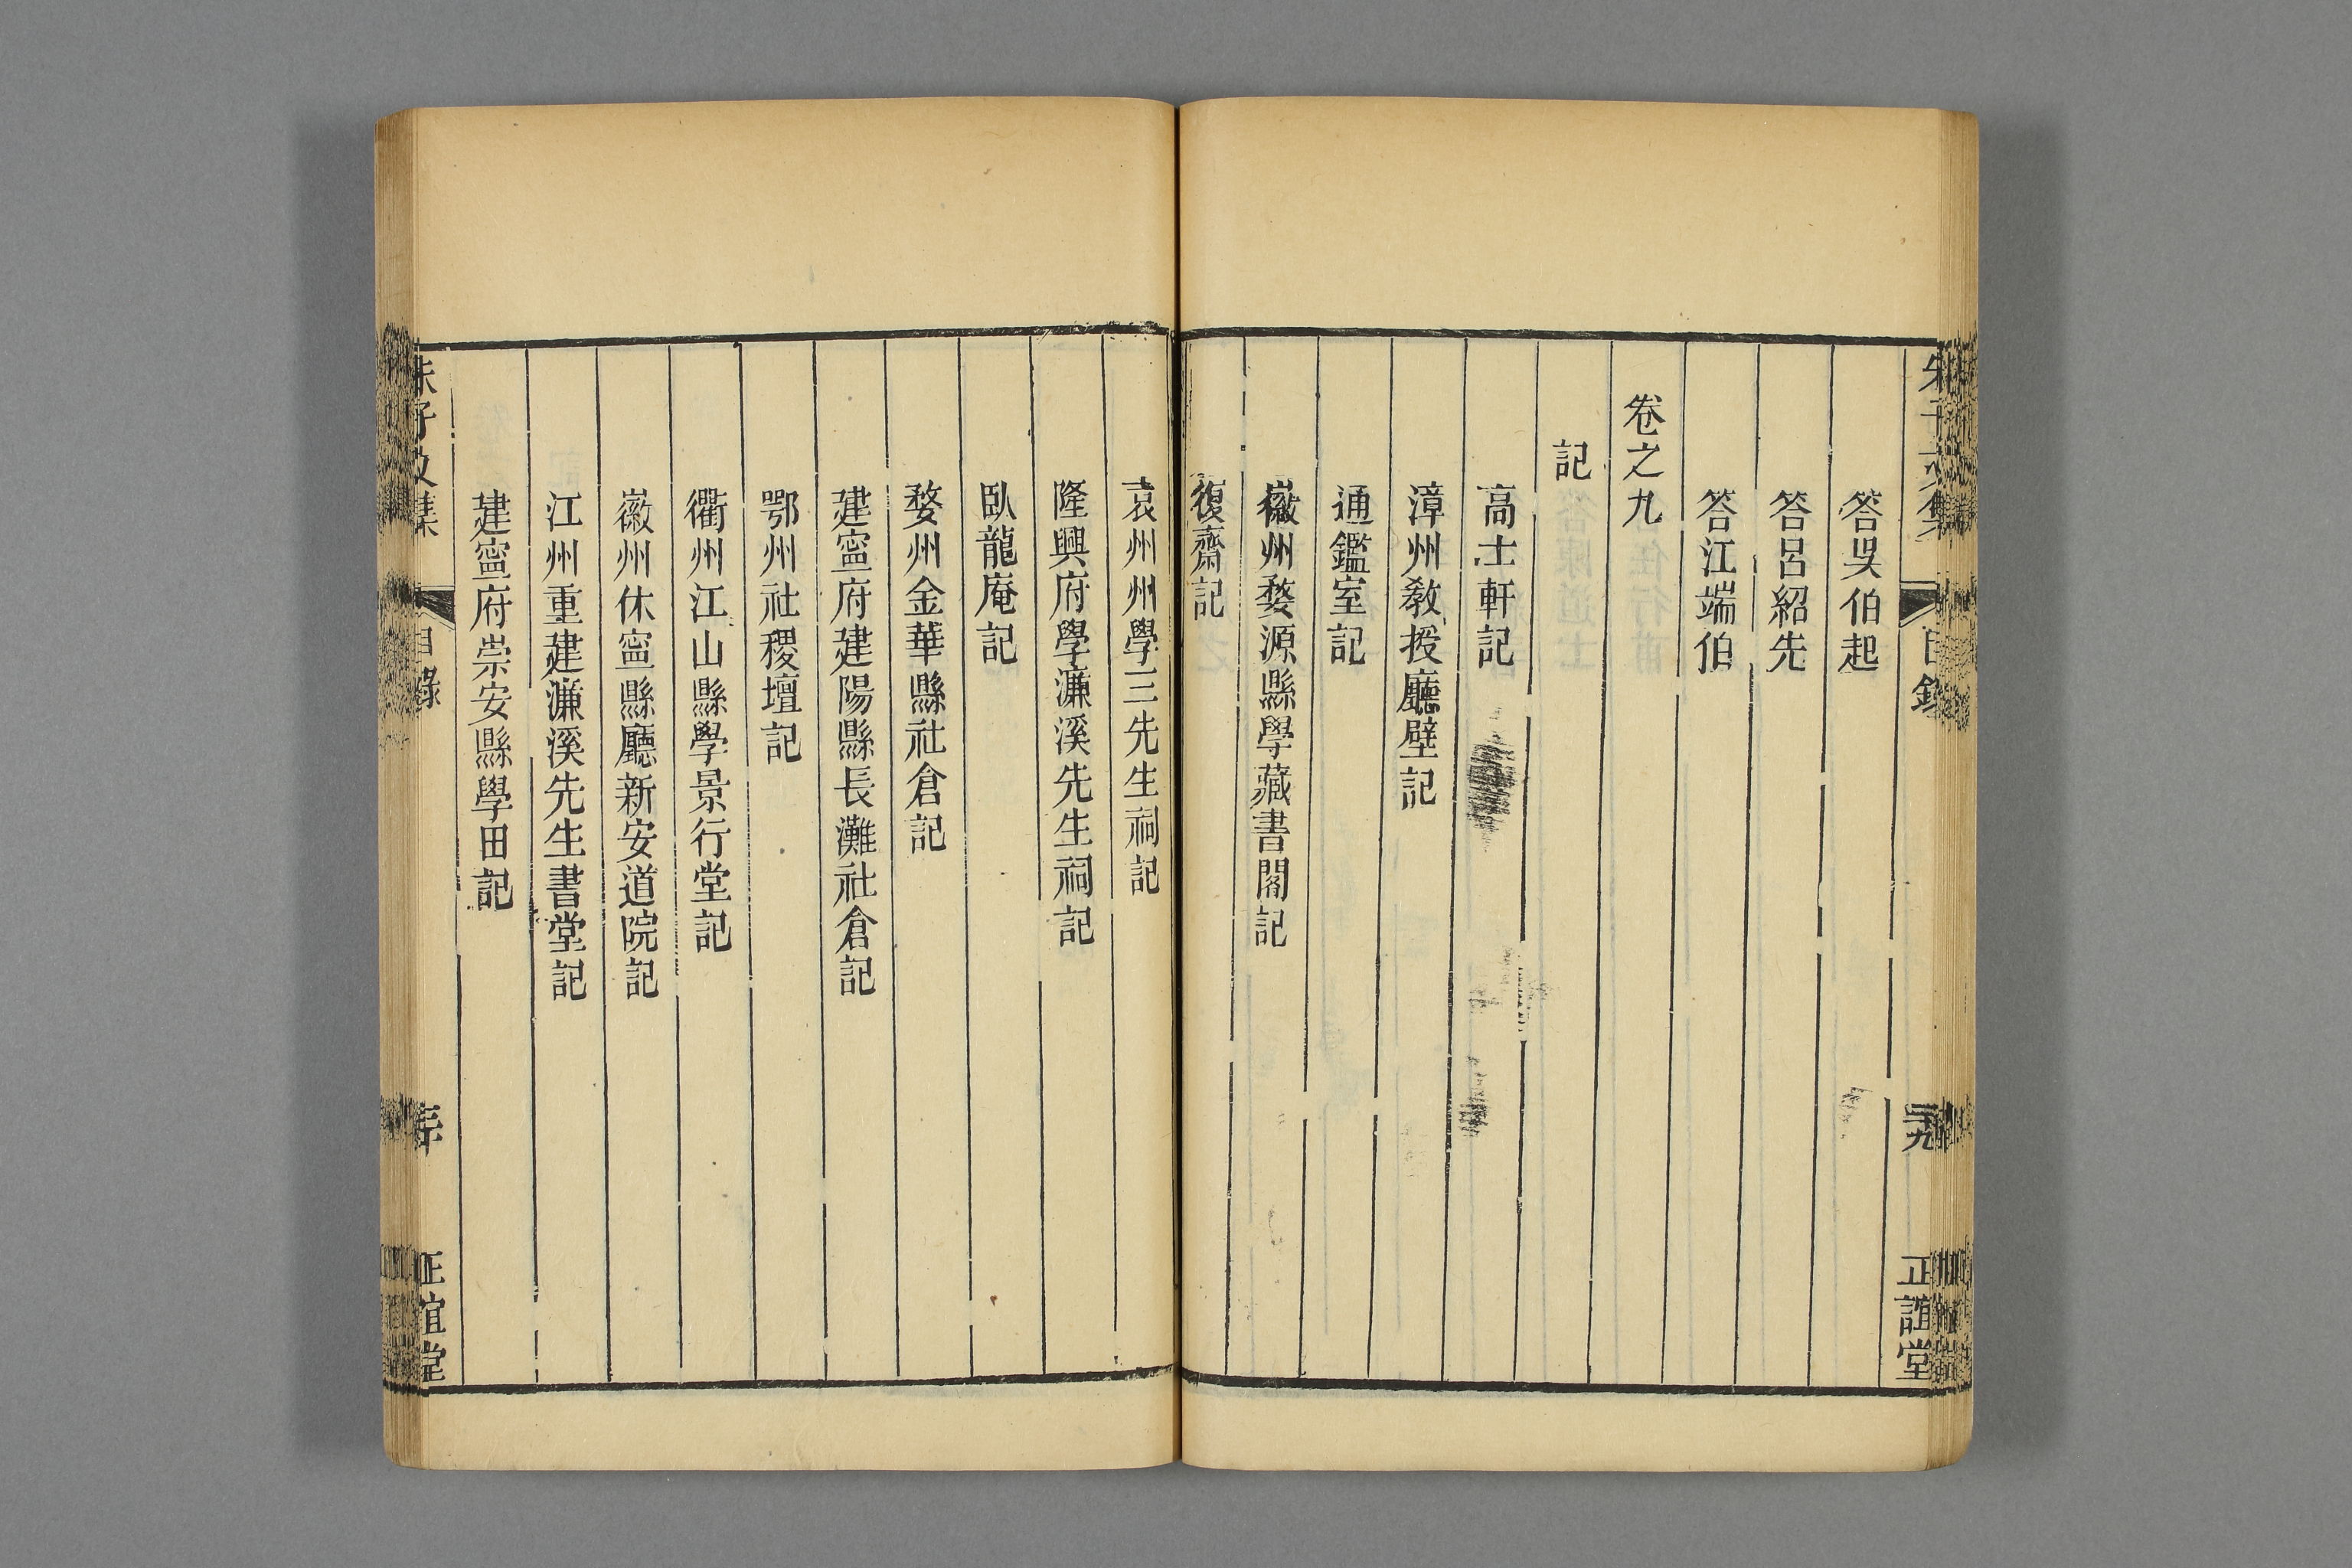 朱子文集 目錄 二十九 正誼堂
答吳伯起
答呂紹先
答江端伯
卷之九
記
高士軒記
漳州教授廳壁記
通鑑室記
徽州婺源縣學藏書閣記
復齋記
袁州州學三先生祠記
隆興府學濂溪先生祠記
臥龍庵記
婺州金華縣社倉記
建寧府建陽縣長灘社倉記
鄂州社稷壇記
衢州江山縣學景行堂記
徽州休寧縣廳新安道院記
江州重建濂溪先生書堂記
建寧府崇安縣學田記
朱子文集 目錄 三十 正誼堂